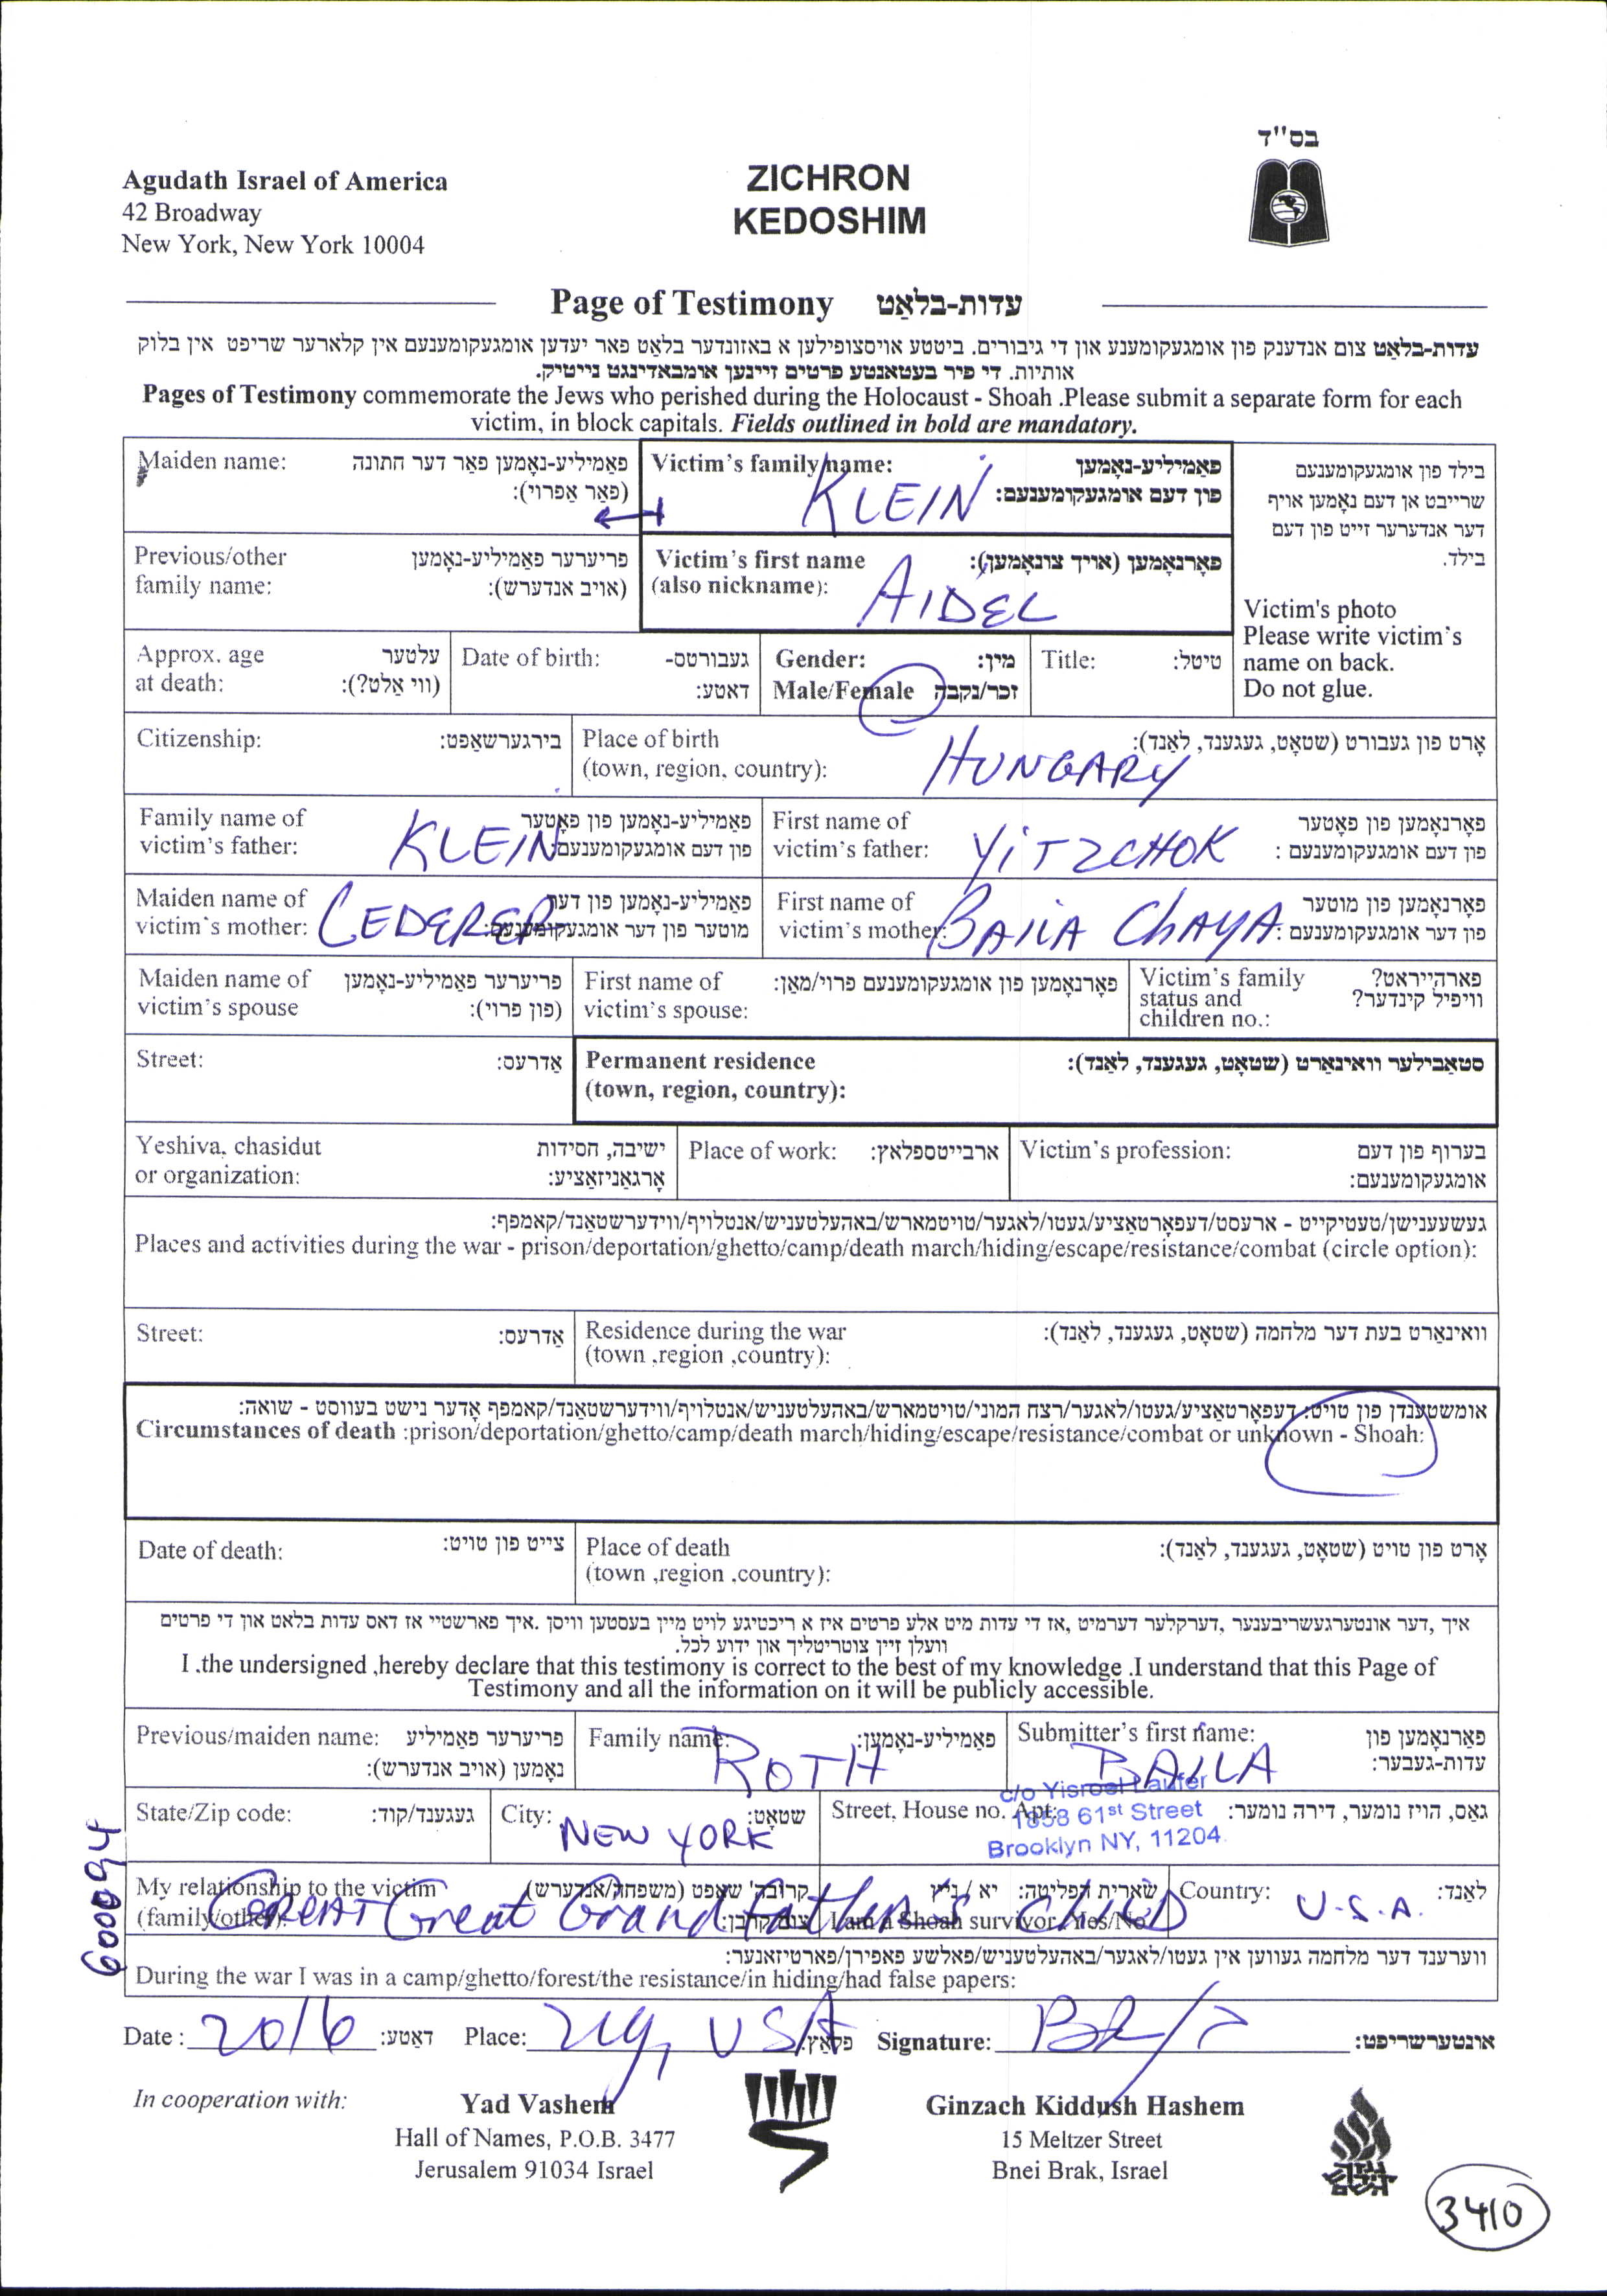 בס"ד
Agudath Israel of America
42 Broadway
New York, New York 10004
ZICHRON
KEDOSHIM
Page of Testimony עדות-בלאַט
עדות-בלאַט צום אנדענק פון אומגעקומענע און די גיבורים. ביטטע אויסצופילען א באזונדער בלאַט פאר יעדען אומגעקומענעם אין קלארער שריפט אין בלוק
אותיות. די פיר בעטאנטע פרטים זיינען אומבאדינגט נייטיק.
Pages of Testimony commemorate the Jews who perished during the Holocaust - Shoah .Please submit a separate form for each
victim, in block capitals. Fields outlined in bold are mandatory.
Maiden name: פאַמיליע-נאָמען פאַר דער חתונה
(פאַר אַפרוי):
Victim's family name: פאַמיליע-נאָמען
פון דעם אומגעקומענעם:
KLEIN
בילד פון אומגעקומענעם
שרייבט אן דעם נאָמען אויף
דער אנדערער זייט פון דעם
בילד.
Victim's photo
Please write victim's
name on back.
Do not glue.
Previous/other פריערער פאַמיליע-נאָמען
family name: (אויב אנדערש):
Victim's first name פאָרנאָמען (אויך צונאָמען):
(also nickname):
AIDEL
Approx. age עלטער
at death: (ווי אַלט?):
Date of birth: געבורטס-
דאטע:
Gender: מין:
Male/Female זכר/נקבה
Title: טיטל:
Citizenship: בירגערשאַפט:
Place of birth אָרט פון געבורט (שטאָט, געגענד, לאַנד):
(town, region, country):
HUNGARY
Family name of פאַמיליע-נאָמען פון פאָטער
victim's father: פון דעם אומגעקומענעם:
KLEIN
First name of פאָרנאָמען פון פאָטער
victim's father: פון דעם אומגעקומענעם :
YITZCHOK
Maiden name of פאַמיליע-נאָמען פון דער
victim's mother: מוטער פון דער אומגעקומענעם:
LEDERER
First name of פאָרנאָמען פון מוטער
victim's mother: פון דער אומגעקומענעם:
BAILA CHAYA
Maiden name of פריערער פאַמיליע-נאָמען
victim's spouse (פון פרוי):
First name of פאָרנאָמען פון אומגעקומענעם פרוי/מאַן:
victim's spouse:
Victim's family פארהייראט?
status and וויפיל קינדער?
children no.:
Street: אַדרעס:
Permanent residence סטאַבילער וואוינאָרט (שטאָט, געגענד, לאַנד):
(town, region, country):
Yeshiva, chasidut ישיבה, חסידות
or organization: אָרגאַניזאַציע:
Place of work: ארבייטספלאץ:
Victim's profession: בערוף פון דעם
אומגעקומענעם:
געשעענישן/טעטיקייט - ארעסט/דעפאָרטאַציע/געטו/לאגער/טויטמארש/באהעלטעניש/אנטלויף/ווידערשטאַנד/קאמפף:
Places and activities during the war - prison/deportation/ghetto/camp/death march/hiding/escape/resistance/combat (circle option):
Street: אַדרעס:
Residence during the war וואוינאָרט בעת דער מלחמה (שטאָט, געגענד, לאַנד):
(town ,region ,country):
אומשטענדן פון טויט: דעפאָרטאַציע/געטו/לאגער/רצח המוני/טויטמארש/באהעלטעניש/אנטלויף/ווידערשטאַנד/קאמפף אָדער נישט בעוווסט - שואה:
Circumstances of death :prison/deportation/ghetto/camp/death march/hiding/escape/resistance/combat or unknown - Shoah:
Date of death: צייט פון טויט:
Place of death אָרט פון טויט (שטאָט, געגענד, לאַנד):
(town ,region ,country):
איך ,דער אונטערגעשריבענער ,דערקלער דערמיט ,אז די עדות מיט אלע פרטים איז א ריכטיגע לויט מיין בעסטען וויסן .איך פארשטיי אז דאס עדות בלאט און די פרטים
וועלן זיין צוטריטליך און ידוע לכל.
I .the undersigned ,hereby declare that this testimony is correct to the best of my knowledge .I understand that this Page of
Testimony and all the information on it will be publicly accessible.
Previous/maiden name: פריערער פאַמיליע
נאָמען (אויב אנדערש):
Family name: פאַמיליע-נאָמען:
ROTH
Submitter's first name: פאָרנאָמען פון
עדות-געבער:
BAILA
State/Zip code: געגענד/קוד:
City: שטאָט:
NEW YORK
Street, House no. Apt: גאַס, הויז נומער, דירה נומער:
c/o Yisroel Laufer
1858 61st Street
Brooklyn NY, 11204
My relationship to the victim קרובה' שאפט (משפחה/אנדערש)
(family/other): צום קרבן:
GREAT Great Grandfather's CHILD
שארית הפליטה: יא / ניין
I am a Shoah survivor Yes/No
Country: לאַנד:
U.S.A.
ווערענד דער מלחמה געווען אין געטו/לאגער/באהעלטעניש/פאלשע פאפירן/פארטיזאנער:
During the war I was in a camp/ghetto/forest/the resistance/in hiding/had false papers:
600094
Date : 2016 דאַטע: Place: NY, USA פּלאַץ: Signature: אונטערשריפט:
In cooperation with:
Yad Vashem
Hall of Names, P.O.B. 3477
Jerusalem 91034 Israel
Ginzach Kiddush Hashem
15 Meltzer Street
Bnei Brak, Israel
3410